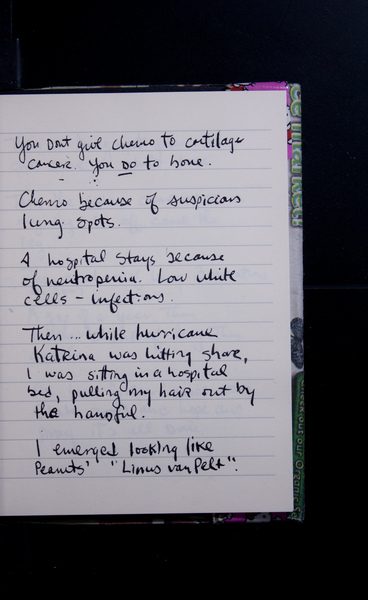 You Dont give chemo to cartilage
cancer. You Do to bone.
Chemo because of suspicious
lung spots.
4 hospital stays because
of neutropenia. Low white
cells - infections.
Then ... while hurricane
Katrina was hitting shore,
I was sitting in a hospital
bed, pulling my hair out by
the handful.
I emerged looking like
Peanuts' "Linus van Pelt".